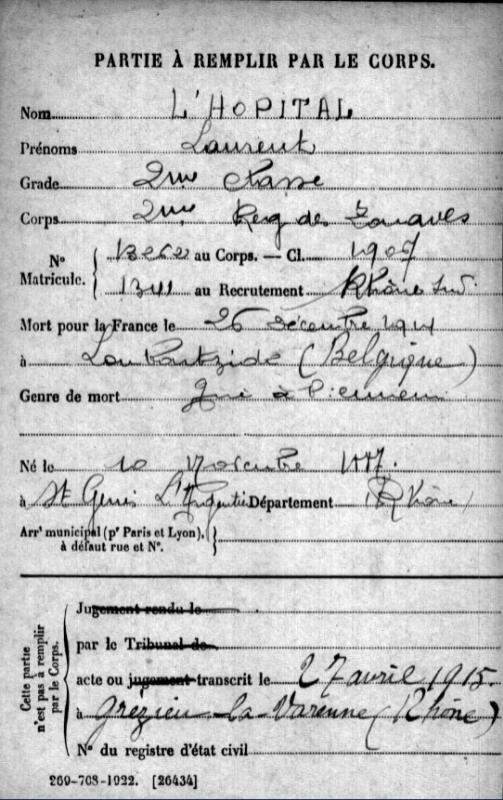 PARTIE À REMPLIR PAR LE CORPS.
Nom L'HOPITAL
Prénoms Laurent
Grade 2me Classe
Corps 2me Reg de Zouaves
N° Matricule. au Corps. — Cl. 1907
au Recrutement Rhône Sud
Mort pour la France le 26 décembre 1914
à (Belgique)
Genre de mort Tué à l'ennemi
Né le 10 Novembre 1887.
à St Genis L'Argentière Département Rhône
Arrt municipal (pr Paris et Lyon), à défaut rue et N°.
Cette partie n'est pas à remplir par le Corps.
Jugement rendu le
par le Tribunal de
acte ou jugement transcrit le 27 avril 1915.
à Grezieu-la-Varenne (Rhône)
N° du registre d'état civil
269-708-1922. [26434]